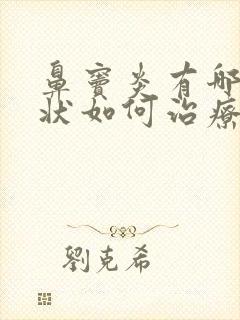 鼻窦炎有哪
状如何治療
劉克希